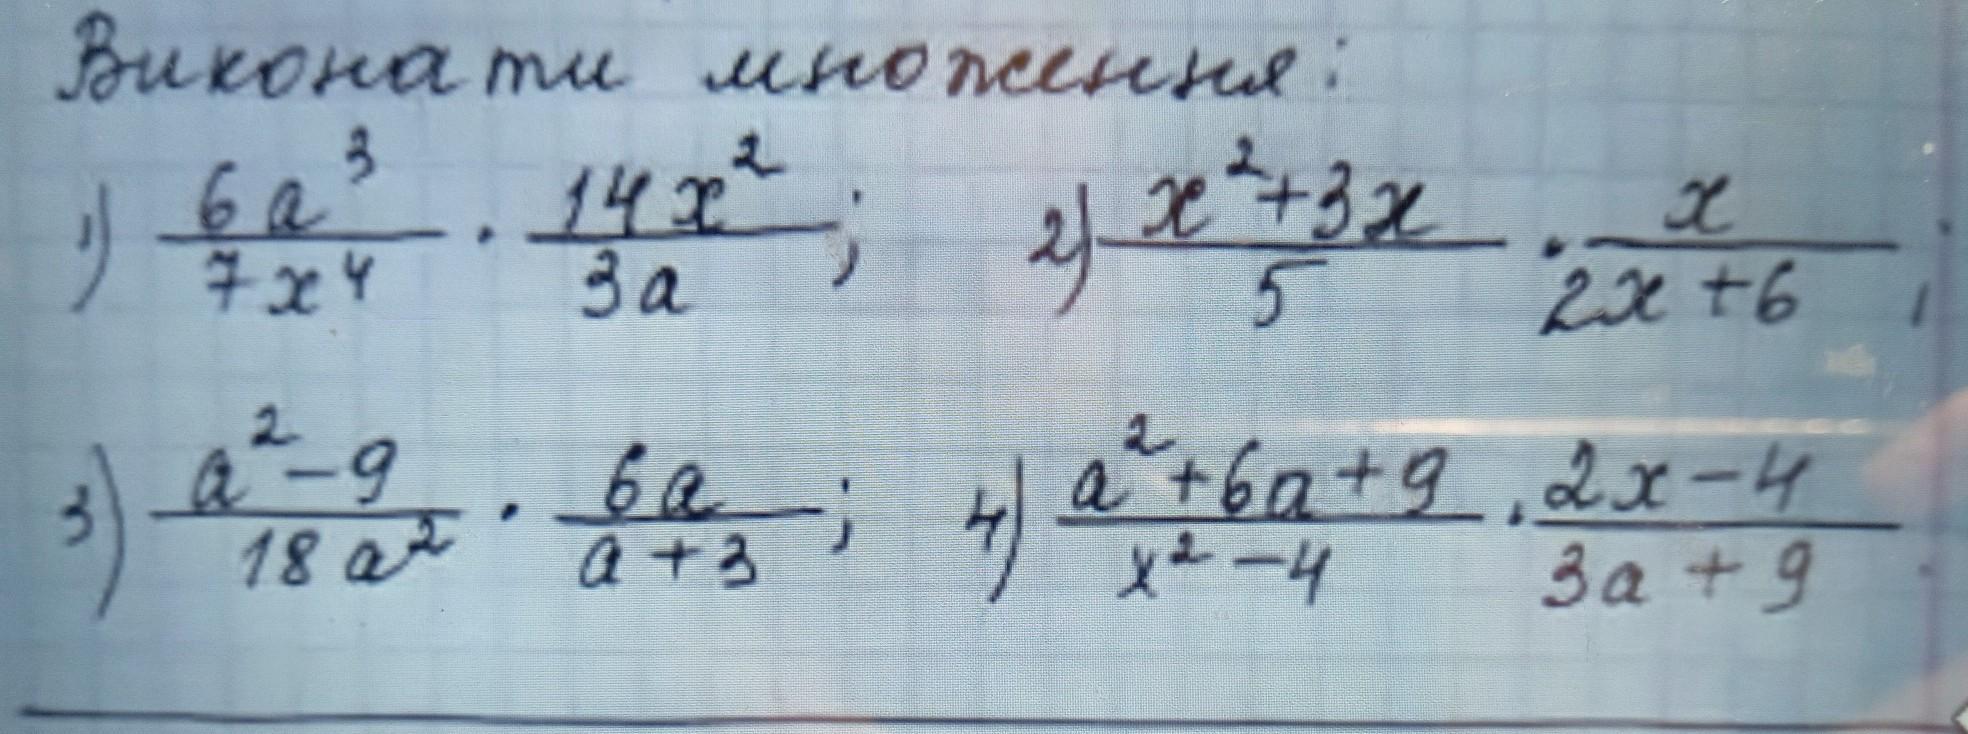 Виконати множення:
1) 6a³/7x⁴ · 14x²/3a; 2) x²+3x/5 · x/2x+6;
3) a²-9/18a² · 6a/a+3; 4) a²+6a+9/x²-4 · 2x-4/3a+9